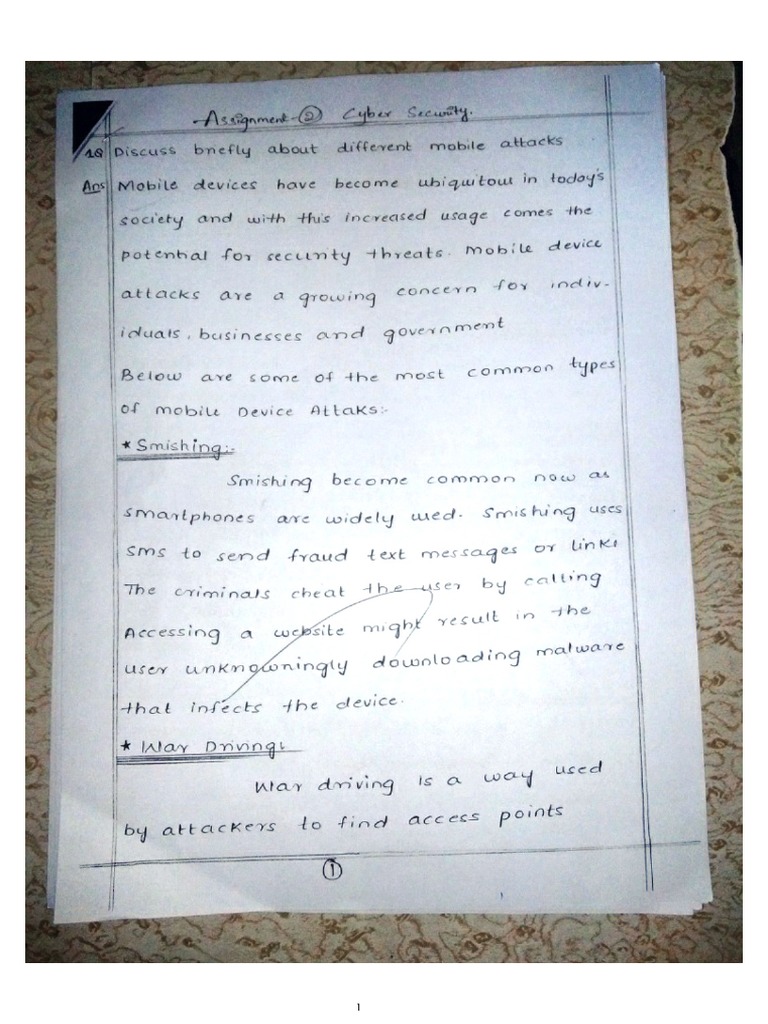 Assignment-② Cyber Security.
1Q Discuss briefly about different mobile attacks
Ans Mobile devices have become ubiquitous in today's
society and with this increased usage comes the
potential for security threats. Mobile device
attacks are a growing concern for indiv-
iduals, businesses and government
Below are some of the most common types
of mobile Device Attaks:-
* Smishing:-
Smishing become common now as
smartphones are widely used. Smishing uses
sms to send fraud text messages or links
The criminals cheat the user by calling
Accessing a website might result in the
user unknowningly downloading malware
that infects the device.
* War Driving:
War driving is a way used
by attackers to find access points
①
1